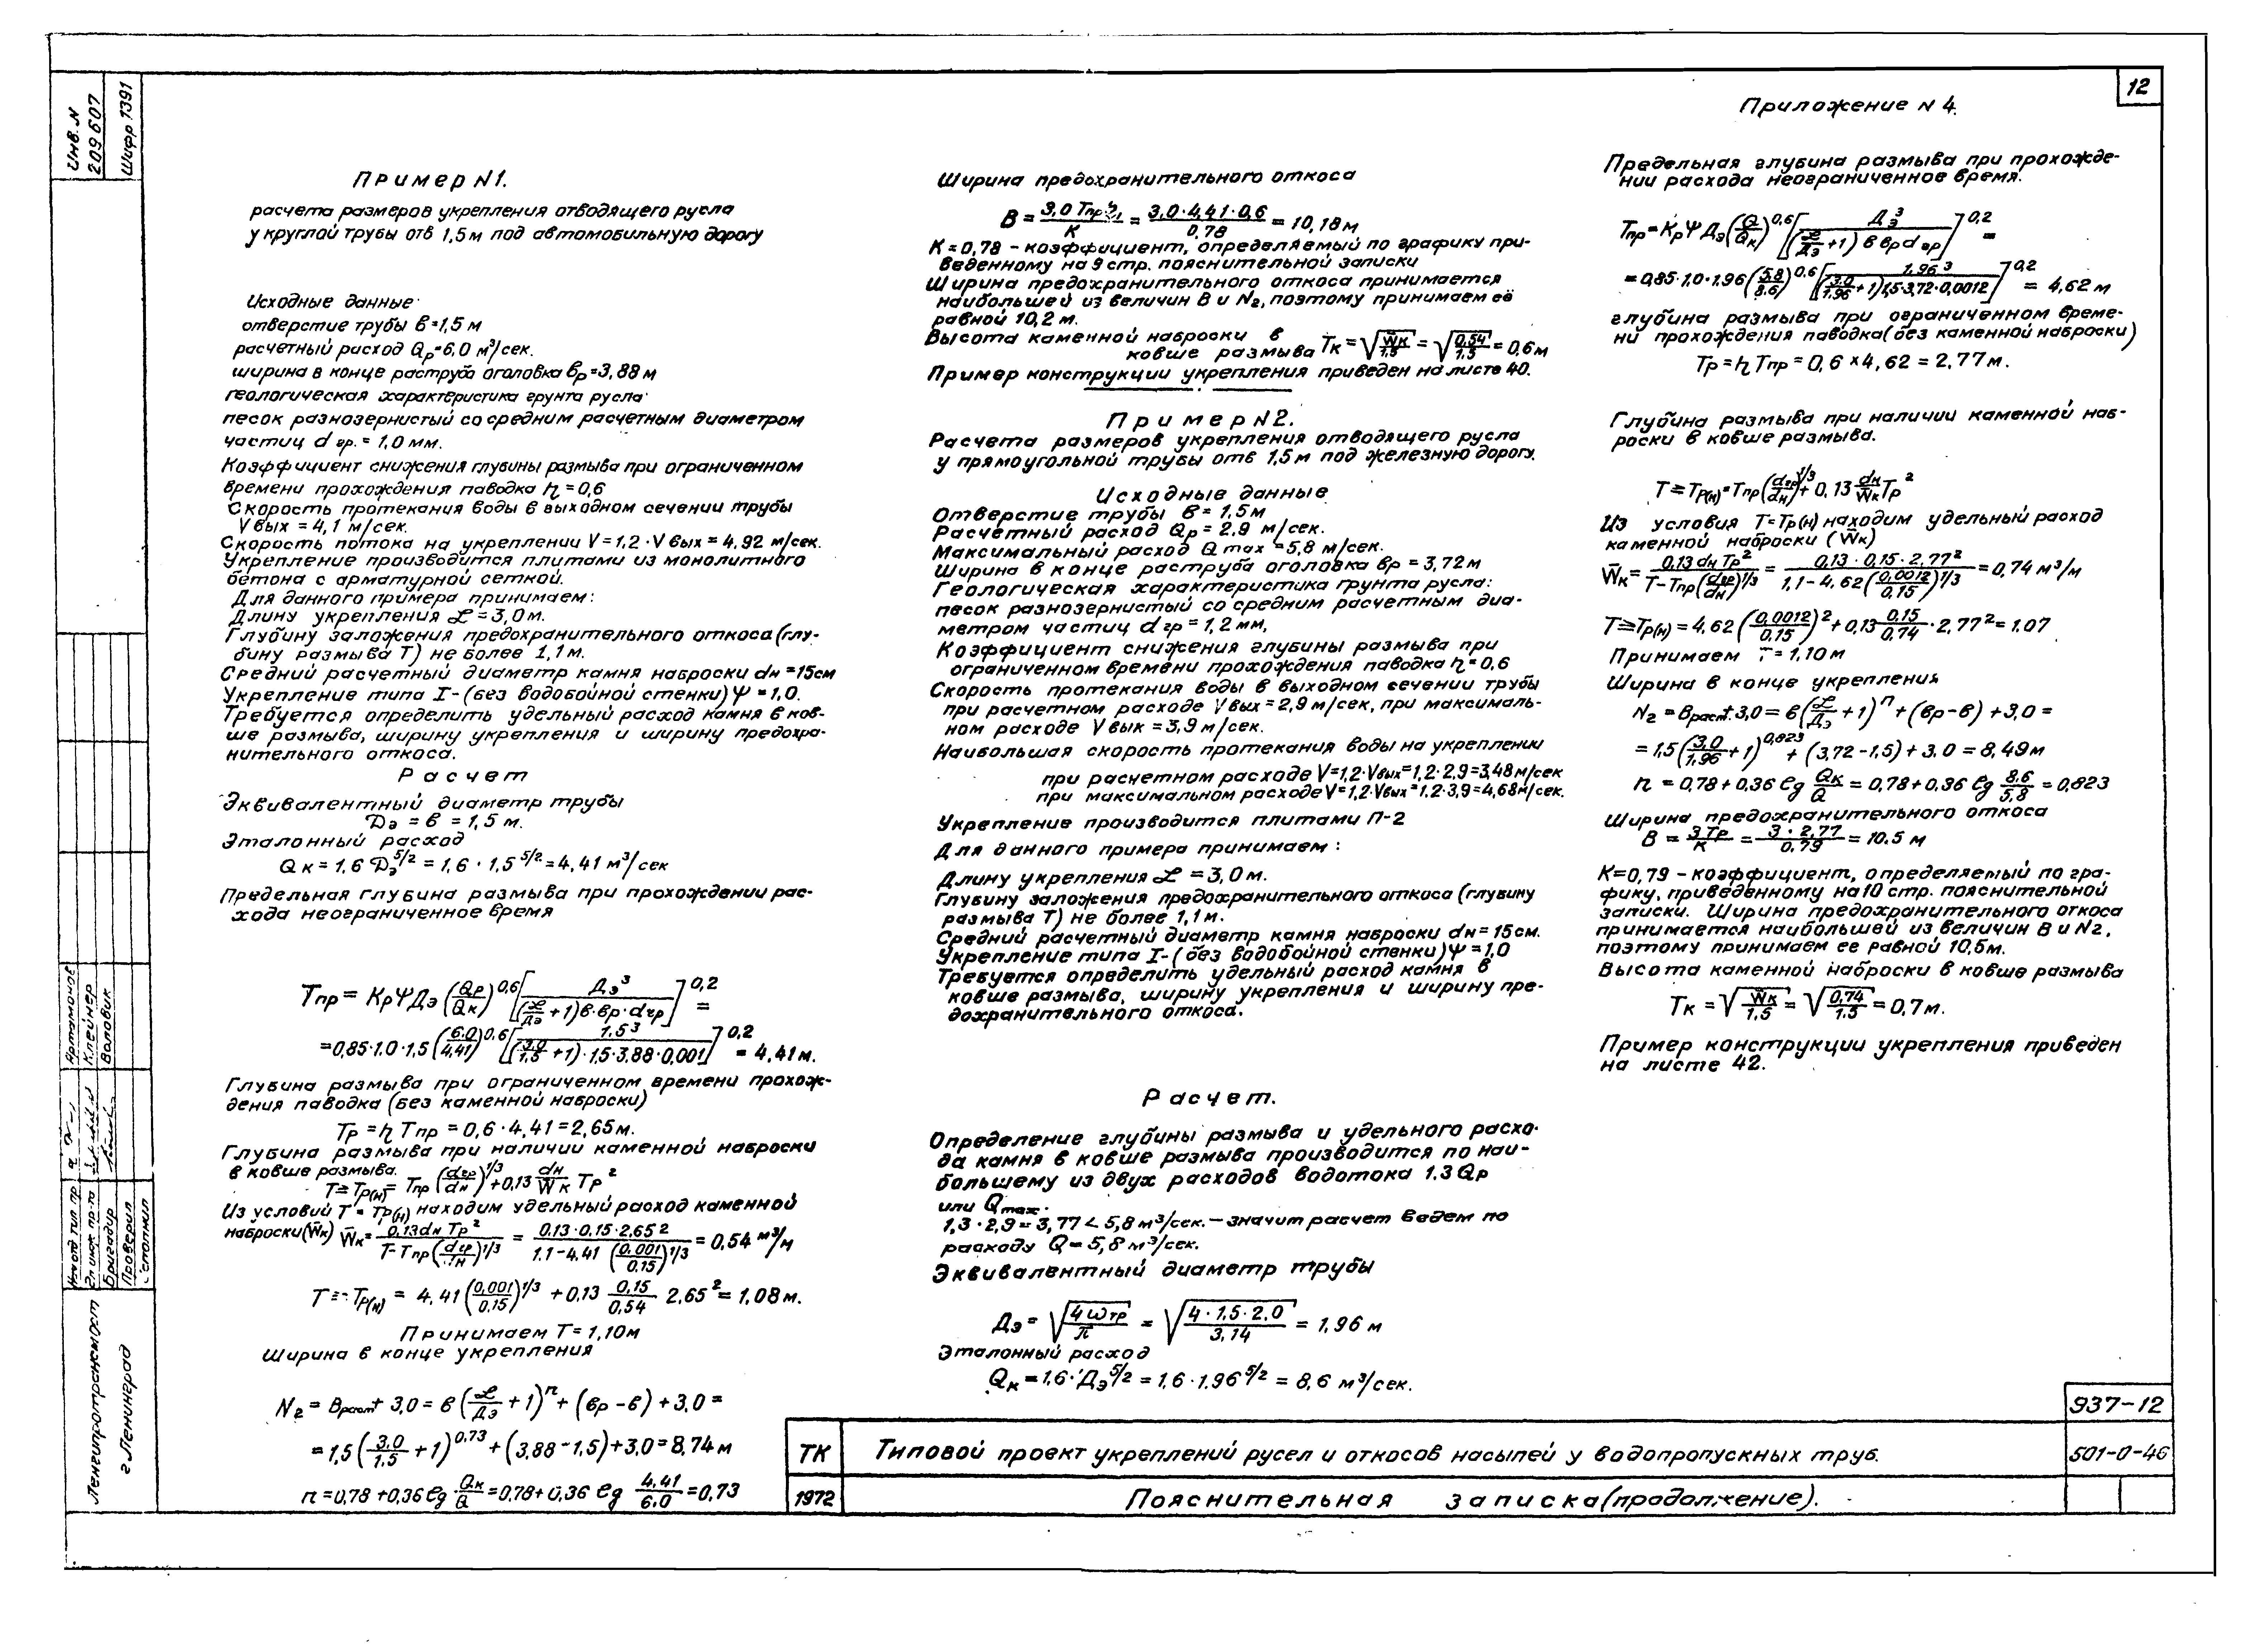 12
Приложение N 4.
Инв. N
209607
Шифр 1391
Пример N1.
расчета размеров укрепления отводящего русла
у круглой трубы отв 1,5м под автомобильную дорогу
Исходные данные
отверстие трубы в=1,5м
расчетный расход Qр=6,0 м³/сек.
ширина в конце раструба оголовка вр=3,88м
геологическая характеристика грунта русла
песок разнозернистый со средним расчетным диаметром
частиц d гр. = 1,0 мм.
Коэффициент снижения глубины размыва при ограниченном
времени прохождения паводка η = 0,6
Скорость протекания воды в выходном сечении трубы
V вых = 4,1 м/сек.
Скорость потока на укреплении V=1,2·V вых = 4,92 м/сек.
Укрепление производится плитами из монолитного
бетона с арматурной сеткой.
Для данного примера принимаем:
Длину укрепления ℒ=3,0м.
Глубину заложения предохранительного откоса (глу-
бину размыва Т) не более 1,1м.
Средний расчетный диаметр камня наброски dн=15см
Укрепление типа I-(без водобойной стенки) Ψ=1,0.
Требуется определить удельный расход камня в ков-
ше размыва, ширину укрепления и ширину предохра-
нительного откоса.
Расчет
Эквивалентный диаметр трубы
Дэ = в = 1,5 м.
Эталонный расход
Qк = 1,6 Дэ^5/2 = 1,6 · 1,5^5/2 = 4,41 м³/сек
Предельная глубина размыва при прохождении рас-
хода неограниченное время
Тпр = Кр Ψ Дэ (Qр/Qк)^0,6 [Дэ³/((ℒ/Дэ + 1) в·вр·dгр)]^0,2 =
=0,85·1.0·1,5 (6.0/4,41)^0,6 [1.5³/((3.0/1,5 + 1)·1,5·3,88·0,001)]^0,2 = 4,41м.
Глубина размыва при ограниченном времени прохож-
дения паводка (без каменной наброски)
Тр = η Тпр = 0,6·4,41=2,65м.
Глубина размыва при наличии каменной наброски
в ковше размыва.
Т ≥ Тр(н) = Тпр (dгр/dн)^1/3 + 0,13 dн/W̄к Тр²
Из условий Т = Тр(н) находим удельный расход каменной
наброски (W̄к) W̄к = 0,13 dн Тр²/(Т-Тпр(dгр/dн)^1/3) = 0.13·0,15·2,65²/(1.1-4,41 (0,001/0,15)^1/3) = 0,54 м³/м
Т ≥ Тр(н) = 4,41 (0,001/0,15)^1/3 + 0,13 0,15/0,54 2,65² = 1,08м.
Принимаем Т=1,10м
Ширина в конце укрепления
N₂ = Враст + 3,0 = в (ℒ/Дэ + 1)^n + (вр - в) + 3,0 =
= 1,5 (3,0/1,5 + 1)^0,73 + (3,88-1,5)+3,0=8,74м
n=0,78+0,36 ℓg Qк/Q =0,78+0,36 ℓg 4,41/6.0 =0,73
Ширина предохранительного откоса
В = 3,0 Тпр η/К = 3,0·4,41·0,6/0,78 = 10,18м
К=0,78 - коэффициент, определяемый по графику при-
веденному на 9 стр. пояснительной записки
Ширина предохранительного откоса принимается
наибольшей из величин В и N₂, поэтому принимаем её
равной 10,2 м.
Высота каменной наброски в
ковше размыва Тк = √(W̄к/1,5) = √(0,54/1,5) = 0,6м
Пример конструкции укрепления приведен на листе 40.
Пример N2.
Расчета размеров укрепления отводящего русла
у прямоугольной трубы отв 1,5м под железную дорогу.
Исходные данные
Отверстие трубы в=1,5м
Расчетный расход Qр= 2,9 м/сек.
Максимальный расход Q max =5,8 м/сек.
Ширина в конце раструба оголовка вр = 3,72м
Геологическая характеристика грунта русла:
песок разнозернистый со средним расчетным диа-
метром частиц d гр = 1,2мм,
Коэффициент снижения глубины размыва при
ограниченном времени прохождения паводка η=0,6
Скорость протекания воды в выходном сечении трубы
при расчетном расходе Vвых=2,9м/сек, при максималь-
ном расходе Vвых=3,9м/сек.
Наибольшая скорость протекания воды на укреплении
при расчетном расходе V=1,2·Vвых=1,2·2,9=3,48м/сек
при максимальном расходе V=1,2·Vвых=1,2·3,9=4,68м/сек.
Укрепление производится плитами П-2
Для данного примера принимаем:
Длину укрепления ℒ = 3,0м.
Глубину заложения предохранительного откоса (глубину
размыва Т) не более 1,1м.
Средний расчетный диаметр камня наброски dн=15см.
Укрепление типа I-(без водобойной стенки) Ψ=1,0
Требуется определить удельный расход камня в
ковше размыва, ширину укрепления и ширину пре-
дохранительного откоса.
Расчет.
Определение глубины размыва и удельного расхо-
да камня в ковше размыва производится по наи-
большему из двух расходов водотока 1.3Qр
или Qmax.
1,3·2,9=3,77<5,8м³/сек.-значит расчет ведем по
расходу Q=5,8м³/сек.
Эквивалентный диаметр трубы
Дэ = √(4ωтр/π) = √(4·1,5·2,0/3,14) = 1,96 м
Эталонный расход
Qк = 1,6·Дэ^5/2 = 1,6·1,96^5/2 = 8,6 м³/сек.
Предельная глубина размыва при прохожде-
нии расхода неограниченное время.
Тпр = Кр Ψ Дэ (Q/Qк)^0,6 [Дэ³/((ℒ/Дэ + 1) в вр dгр)]^0,2 =
=0,85·1.0·1.96 (5.8/8.6)^0,6 [1,96³/((3.0/1,96 + 1)1,5·3,72·0,0012)]^0,2 = 4,62м
глубина размыва при ограниченном време-
ни прохождения паводка (без каменной наброски)
Тр = η Тпр = 0,6 × 4,62 = 2,77м.
Глубина размыва при наличии каменной наб-
роски в ковше размыва.
Т ≥ Тр(н) = Тпр (dгр/dн)^1/3 + 0,13 dн/W̄к Тр²
Из условия Т=Тр(н) находим удельный расход
каменной наброски (W̄к)
W̄к = 0,13 dн Тр²/(Т-Тпр(dгр/dн)^1/3) = 0,13·0,15·2,77²/(1,1-4,62(0,0012/0,15)^1/3) = 0,74 м³/м
Т≥Тр(н) = 4,62 (0,0012/0,15)² + 0,13 0,15/0,74 · 2,77² = 1.07
Принимаем Т=1,10м
Ширина в конце укрепления
N₂ = Враст.+3,0 = в (ℒ/Дэ + 1)^n + (вр-в) + 3,0 =
= 1,5 (3,0/1,96 + 1)^0,823 + (3,72-1,5) + 3,0 = 8,49м
n = 0,78 + 0,36 ℓg Qк/Q = 0,78+0,36 ℓg 8,6/5,8 = 0,823
Ширина предохранительного откоса
В = 3 Тр/К = 3·2,77/0,79 = 10.5 м
К=0,79 - коэффициент, определяемый по гра-
фику, приведенному на 10 стр. пояснительной
записки. Ширина предохранительного откоса
принимается наибольшей из величин В и N₂,
поэтому принимаем ее равной 10,5м.
Высота каменной наброски в ковше размыва
Тк = √(W̄к/1,5) = √(0,74/1.5) = 0,7м.
Пример конструкции укрепления приведен
на листе 42.
Артамонов
Клейнер
Воловик
Бригадир
Проверил
Исполнил
Ленгипротрансмост
г Ленинград
ТК
1972
Типовой проект укреплений русел и откосов насыпей у водопропускных труб.
Пояснительная записка (продолжение).
937-12
501-0-46